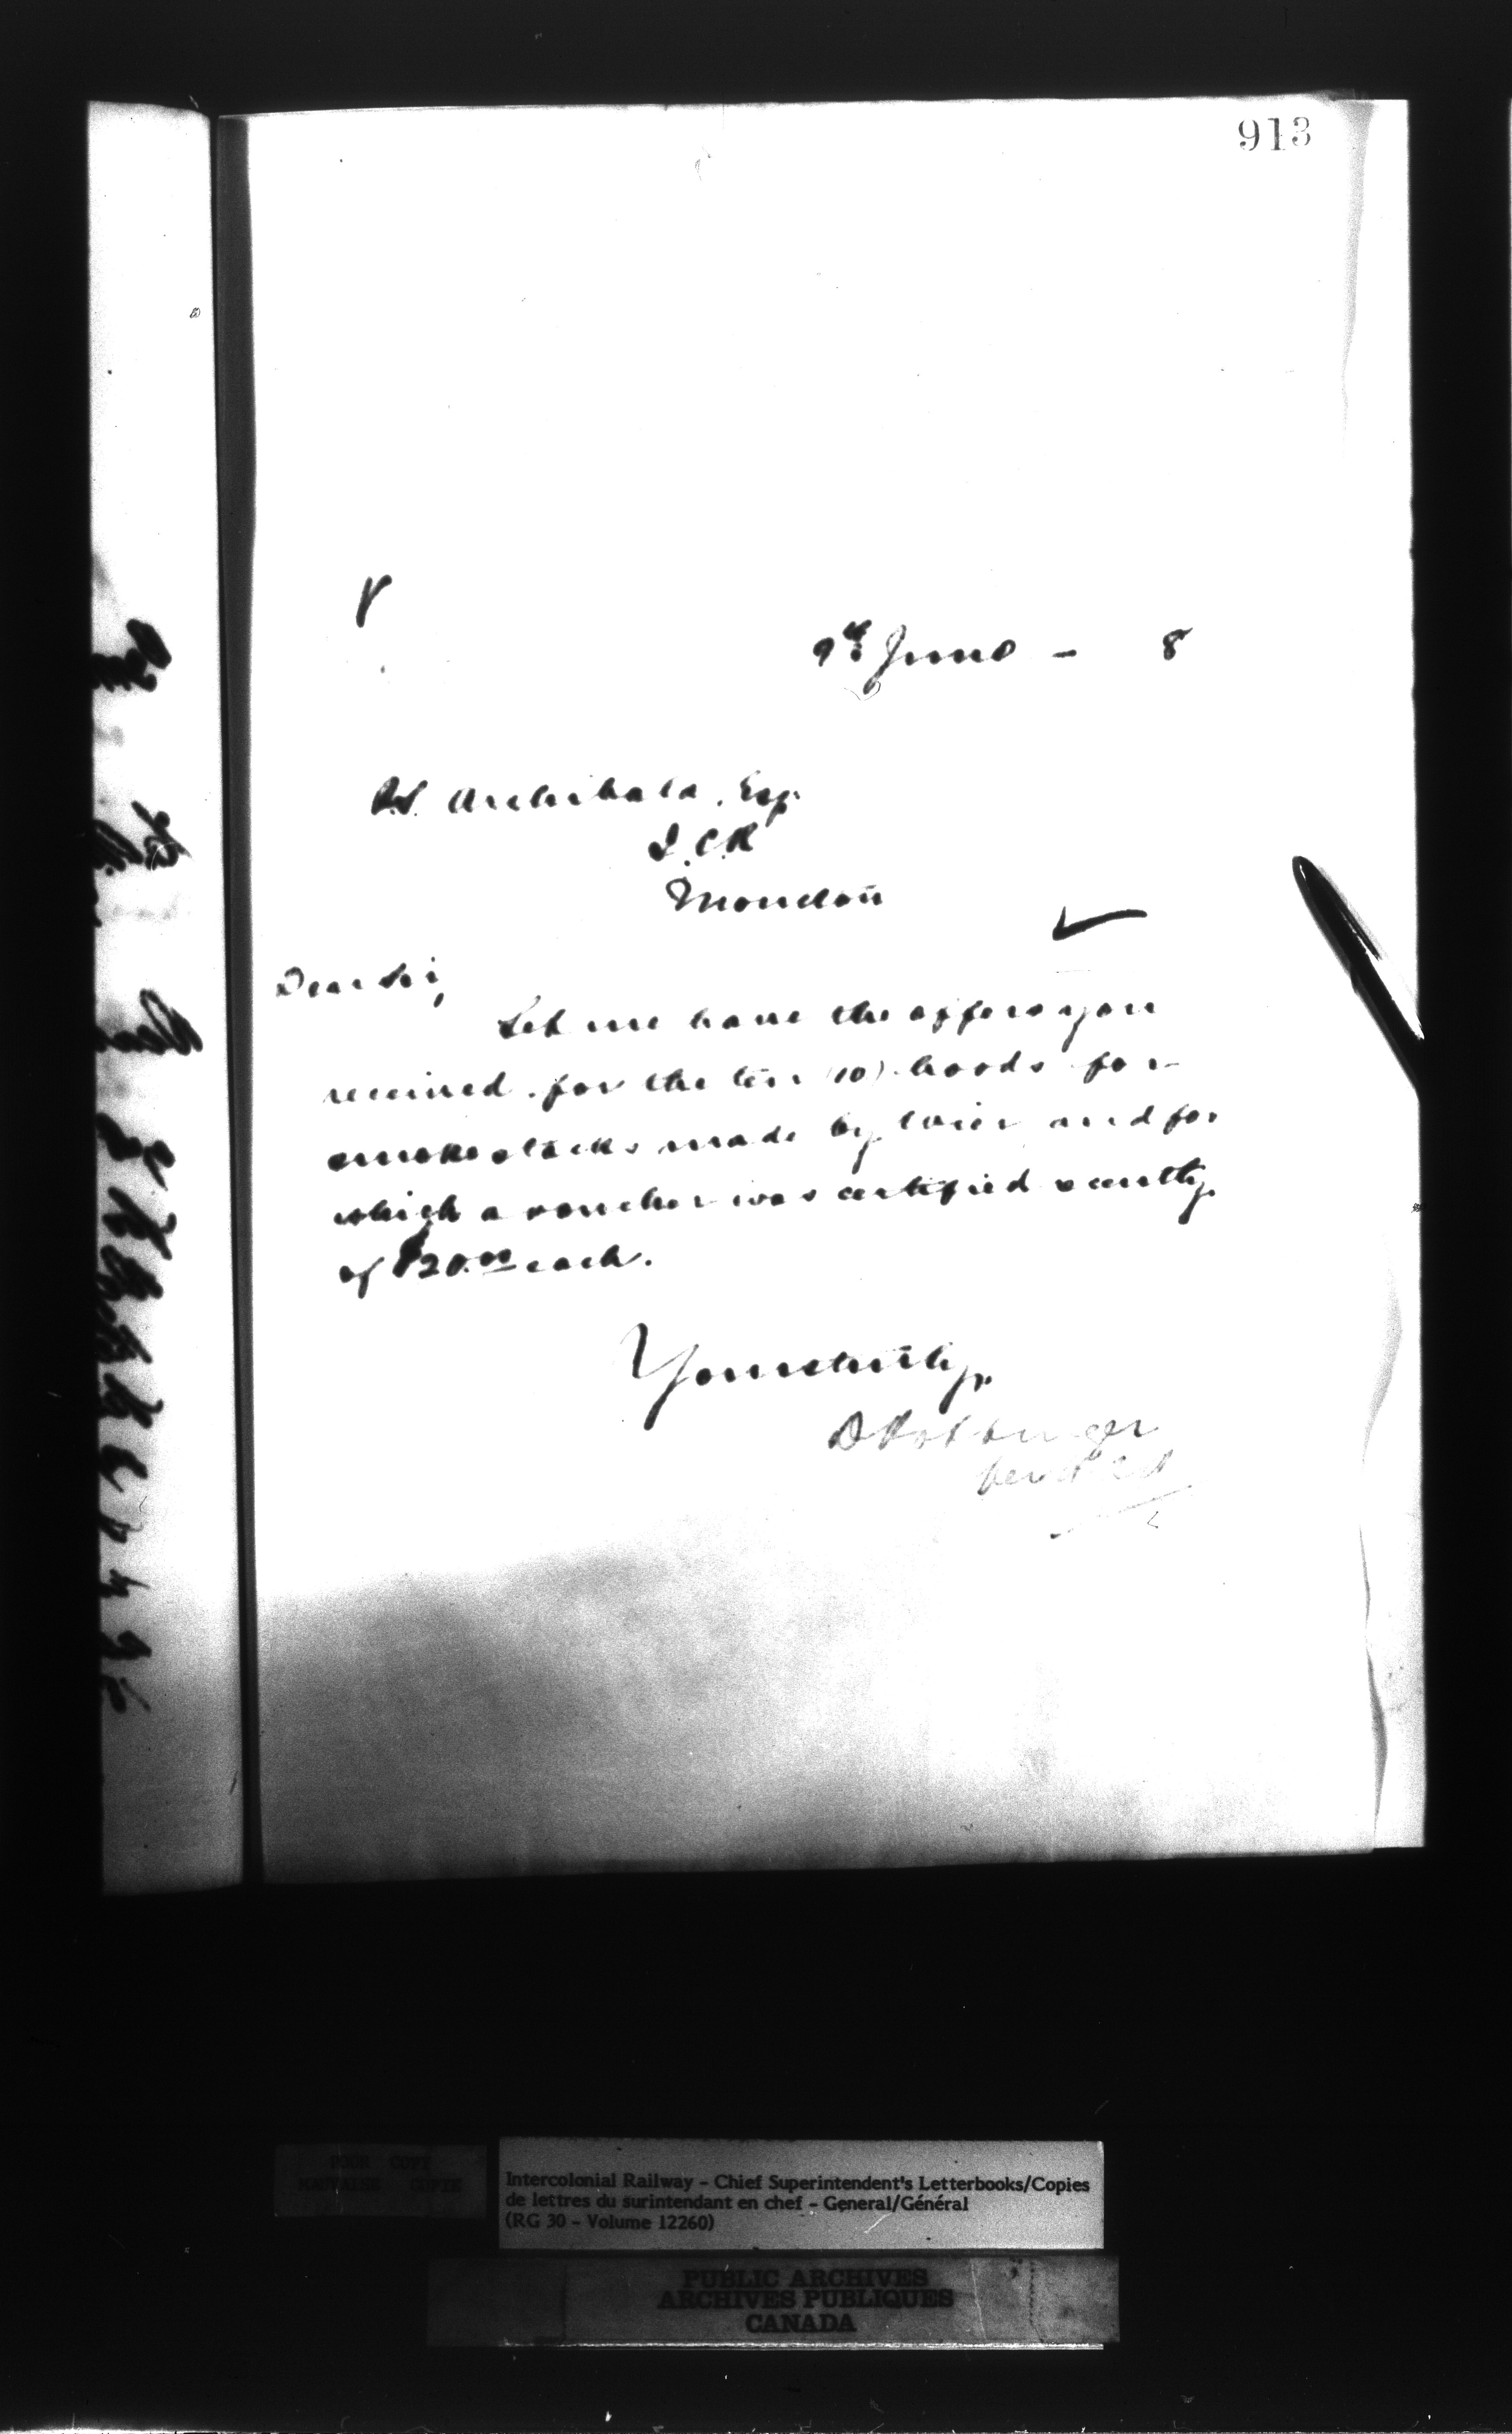 913
9th June - 8
P.S. Archibald, Esq.
I.C.R
Moncton
Dear Sir,
Let me have the offers you
received for the ten (10) hoods for
smokestacks made by and for
which a voucher was certified recently
of $20.00 each.
Yours truly,
D Pottinger
POOR COPY
MAUVAISE COPIE
Intercolonial Railway - Chief Superintendent's Letterbooks/Copies
de lettres du surintendant en chef - General/Général
(RG 30 - Volume 12260)
PUBLIC ARCHIVES
ARCHIVES PUBLIQUES
CANADA